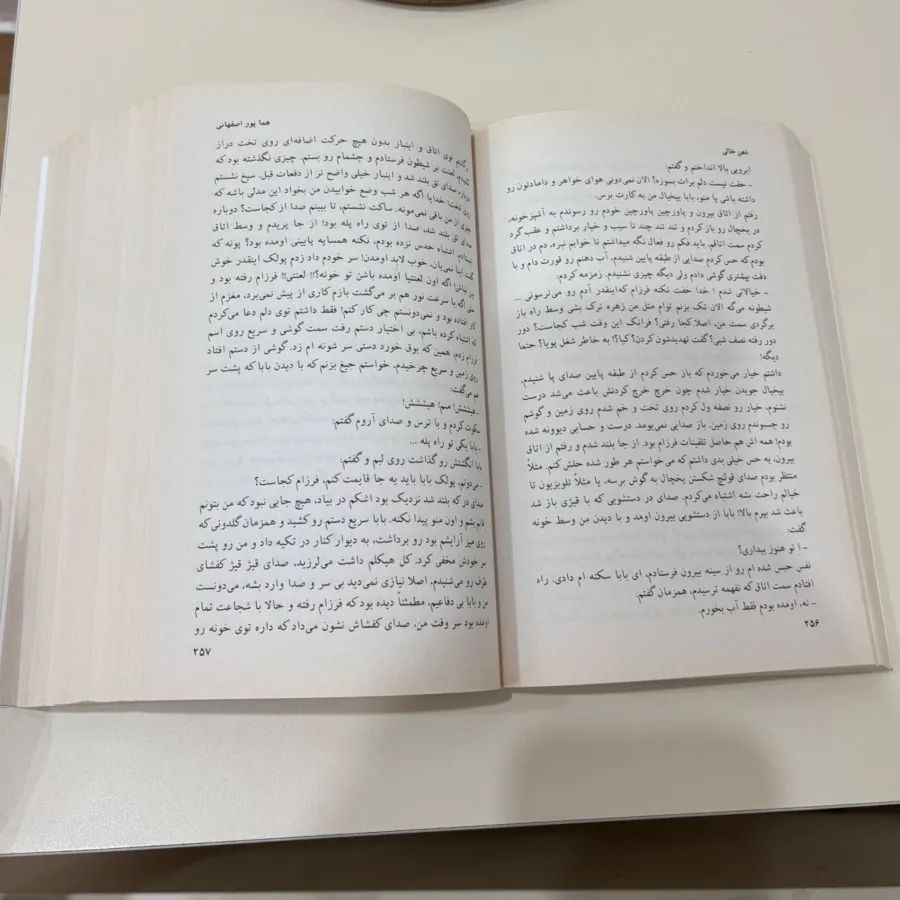 ذهن خالی
ابرویی بالا انداختم و گفتم:
- حقت نیست دلم برات بسوزه؟ الان نمی‌دونی هوای خواهر و دامادتون رو
داشته باشی یا منو، بابا بیخیال من به کارت برس.
رفتم از اتاق بیرون و پاورچین پاورچین خودم رو رسوندم به آشپزخونه،
در یخچال رو باز کردم و تند تند چند تا سیب و خیار برداشتم و عقب گرد
کردم سمت اتاقم. باید فکم رو فعال نگه میداشتم تا خوابم نبره، دم در اتاق
بودم که حس کردم صدایی از طبقه پایین شنیدم، آب دهنم رو قورت دام و با
دقت بیشتری گوشی دادم ولی دیگه چیزی نشنیدم. زمزمه کردم:
- خیالاتی شدم ! خدا خفت نکنه فرزام که‌اینقدر آدم رو می‌ترسونی ...
شیطونه می‌گه الان تک بزنم توام مثل من زهره ترک بشی وسط راه باز
برگردی سمت من، اصلا کجا رفتی؟ فرانک این وقت شب کجاست؟ دور
دور رفته نصف شبی؟ گفت تهدیدشون کردن؟ کیا؟! به خاطر شغل پویا؟ حتما
دیگه!
داشتم خیار می‌خوردم که باز حس کردم از طبقه پایین صدای پا شنیدم،
بیخیال جویدن خیار شدم چون خرچ خرچ کردنش باعث می‌شد درست
نشنوم، خیار رو نصفه ول کردم روی تخت و خم شدم روی زمین و گوشم
رو چسبوندم روی زمین. باز صدایی نمی‌یومد. درست و حسابی دیوونه شده
بودم! همه اش هم حاصل تلقینات فرزام بود. از جا بلند شدم و رفتم از اتاق
بیرون، یه حس خیلی بدی داشتم که می‌خواستم هر طور شده حلش کنم. مثلاً
منتظر بودم صدای قولنج شکستن یخچال به گوش برسه، یا مثلاً تلویزیون تا
خیالم راحت بشه اشتباه می‌کردم. صدای در دستشویی که با قیژی باز شد
باعث شد بپرم بالا! بابا از دستشویی بیرون اومد و با دیدن من وسط خونه
گفت:
- اِ تو هنوز بیداری؟
نفس حبس شده ام رو از سینه بیرون فرستادم، ای بابا سکته ام دادی. راه
افتادم سمت اتاق که نفهمه ترسیدم، همزمان گفتم:
- نه، اومده بودم فقط آب بخورم.
۲۵۶
هما پور اصفهانی
رفتم توی اتاق و اینبار بدون هیچ حرکت اضافه‌ای روی تخت دراز
کشیدم، لعنت بر شیطون فرستادم و چشمام رو بستم. چیزی نگذشته بود که
دوباره صدای تق بلند شد و اینبار خیلی واضح تر از دفعات قبل. سیخ نشستم
روی تخت! خدایا اگه هر شب وضع خوابیدن من بخواد این مدلی باشه که
چیزی از من باقی نمی‌مونه. ساکت نشستم، تا ببینم صدا از کجاست؟ دوباره
صدای تق بلند شد، صدا از توی راه پله بود! از جا پریدم و وسط اتاق
ایستادم. اشتباه حدس نزده بودم، نکنه همسایه پایینی اومده بود؟ پونه که
گفت اینا نمی‌یان. خوب لابد اومدن! سر خودم داد زدم پولک اینقدر خوش
بین نباش! اگه اون لعنتیا اومده باشن تو خونه؟!! لعنتی!! فرزام رفته بود و
حتی اگه با سرعت نور هم بر می‌گشت بازم کاری از پیش نمی‌برد، مغزم از
کار افتاده بود و نمی‌دونستم چی کار کنم! فقط داشتم توی دلم دعا می‌کردم
که اشتباه کرده باشم، بی اختیار دستم رفت سمت گوشی و سریع روی اسم
فرزام زدم، همین که بوق خورد دستی سر شونه ام زد. گوشی از دستم افتاد
روی زمین و سریع چرخیدم، خواستم جیغ بزنم که با دیدن بابا که پشت سر
هم می‌گفت:
- هیشششش! منم! هیشششش!
سکوت کردم و با ترس و صدای آروم گفتم:
- بابا یکی تو راه پله ...
بابا انگشتش رو گذاشت روی لبم و گفتم:
- می‌دونم، پولک بابا باید یه جا قایمت کنم، فرزام کجاست؟
صدای در که بلند شد نزدیک بود اشکم در بیاد، هیچ جایی نبود که من بتونم
قایم بشم و اون منو پیدا نکنه. بابا سریع دستم رو کشید و همزمان گلدونی که
روی میز آرایشم بود رو برداشت، به دیوار کنار در تکیه داد و من رو پشت
سر خودش مخفی کرد. کل هیکلم داشت می‌لرزید، صدای قیژ قیژ کفشای
طرف رو می‌شنیدم، اصلا نیازی نمی‌دید بی سر و صدا وارد بشه، می‌دونست
من و بابا بی دفاعیم، مطمئناً دیده بود که فرزام رفته و حالا با شجاعت تمام
اومده بود سر وقت من، صدای کفشاش نشون می‌داد که داره توی خونه رو
۲۵۷